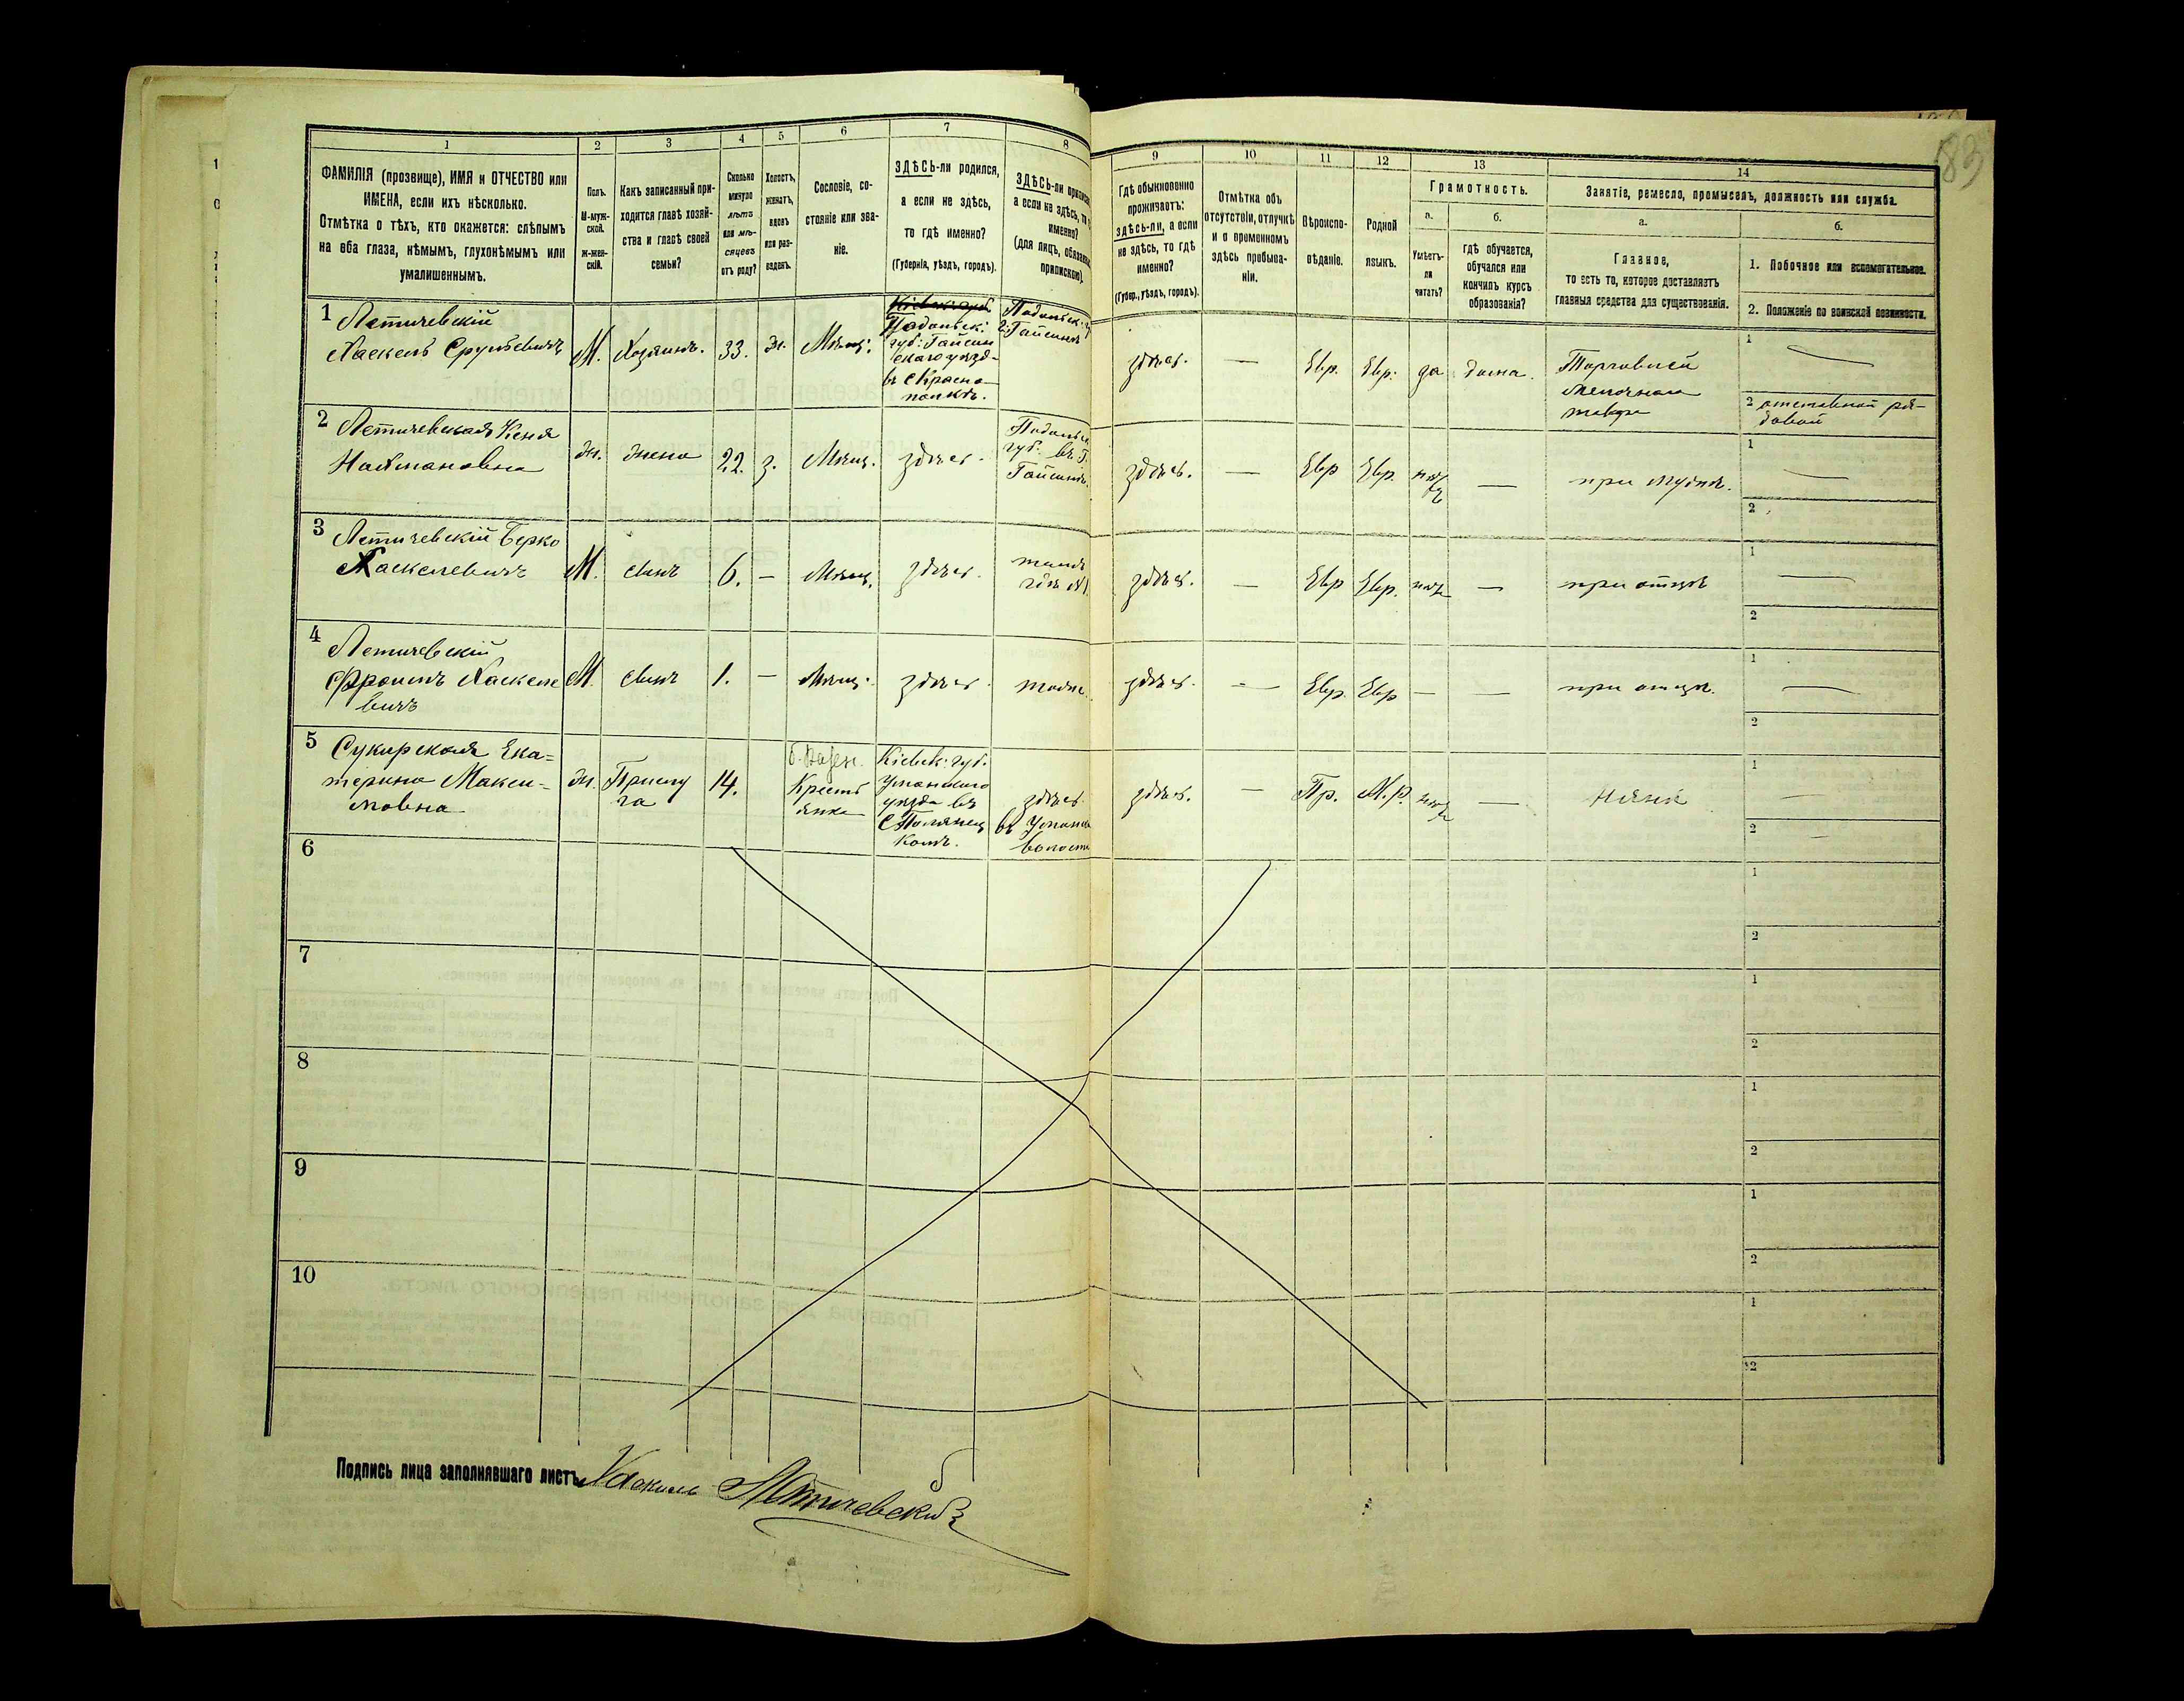 83
1 2 3 4 5 6 7 8 9 10 11 12 13 14
ФАМИЛІЯ (прозвище), ИМЯ и ОТЧЕСТВО или
ИМЕНА, если ихъ нѣсколько.
Отмѣтка о тѣхъ, кто окажется: слѣпымъ
на оба глаза, нѣмымъ, глухонѣмымъ или
умалишеннымъ.
Полъ.
М-муж-
ской.
ж-жен-
скій.
Какъ записанный при-
ходится главѣ хозяй-
ства и главѣ своей
семьи?
Сколько
минуло
лѣтъ
или мѣ-
сяцевъ
отъ роду?
Холостъ,
женатъ,
вдовъ
или раз-
веденъ.
Сословіе, со-
стояніе или зва-
ніе.
ЗДѢСЬ-ли родился,
а если не здѣсь,
то гдѣ именно?
(Губернія, уѣздъ, городъ).
ЗДѢСЬ-ли
а если не здѣсь,
именно?
(для лицъ,
припискою).
Гдѣ обыкновенно
проживаетъ:
здѣсь-ли, а если
не здѣсь, то гдѣ
именно?
(Губер., уѣздъ, городъ).
Отмѣтка объ
отсутствіи, отлучкѣ
и о временномъ
здѣсь пребыва-
ніи.
Вѣроиспо-
вѣданіе.
Родной
языкъ.
Грамотность.
а.
Умѣетъ-
ли
читать?
б.
гдѣ обучается,
обучался или
кончилъ курсъ
образованія?
Занятіе, ремесло, промыселъ, должность или служба.
а.
Главное,
то есть то, которое доставляетъ
главныя средства для существованія.
б.
1. Побочное или вспомогательное.
2. Положеніе по воинской повинности.
1 Летичевскій
Хаскель Срулевичъ
М. Хозяинъ. 33. Ж. Мѣщ.
Подольск:
губ: Гайсин
скаго уѣзд-
въ с Красно-
Подольск.
г. Гайсинъ
здѣсь. Евр. Евр. да дома.
Торговлей
мелочнымъ
1
2 отставной ря-
довой
2 Летичевская Кеня
Нахмановна
Ж. Жена 22. з. Мѣщ. здѣсь.
Подольск
губ. въ г.
Гайсинѣ.
здѣсь. — Евр Евр. — при мужѣ.
1 —
2
3 Летичевскій Берко
Хаскелевичъ
М. сынъ 6. — Мѣщ. здѣсь.
здѣсь. — Евр Евр. — при отцѣ
1 —
2
4 Летичевскій
Фроимъ Хаскеле
вичъ
М. сынъ 1. — Мѣщ. здѣсь. тоже.
здѣсь. — Евр. Евр — — при отцѣ.
1 —
2
5 Сукирская Ека=
терина Макси=
мовна
Ж. Прислу
га 14.
Кресть
янка
Кіевск. губ.
Уманскаго
уѣзда въ
здѣсь
въ Уманск
волости
здѣсь. — Пр. М.Р. — няня
1 —
2 —
6
1
2
7
1
2
8
1
2
9
1
2
10
1
2
Подпись лица заполнявшаго листъ Хаскель Летичевскій